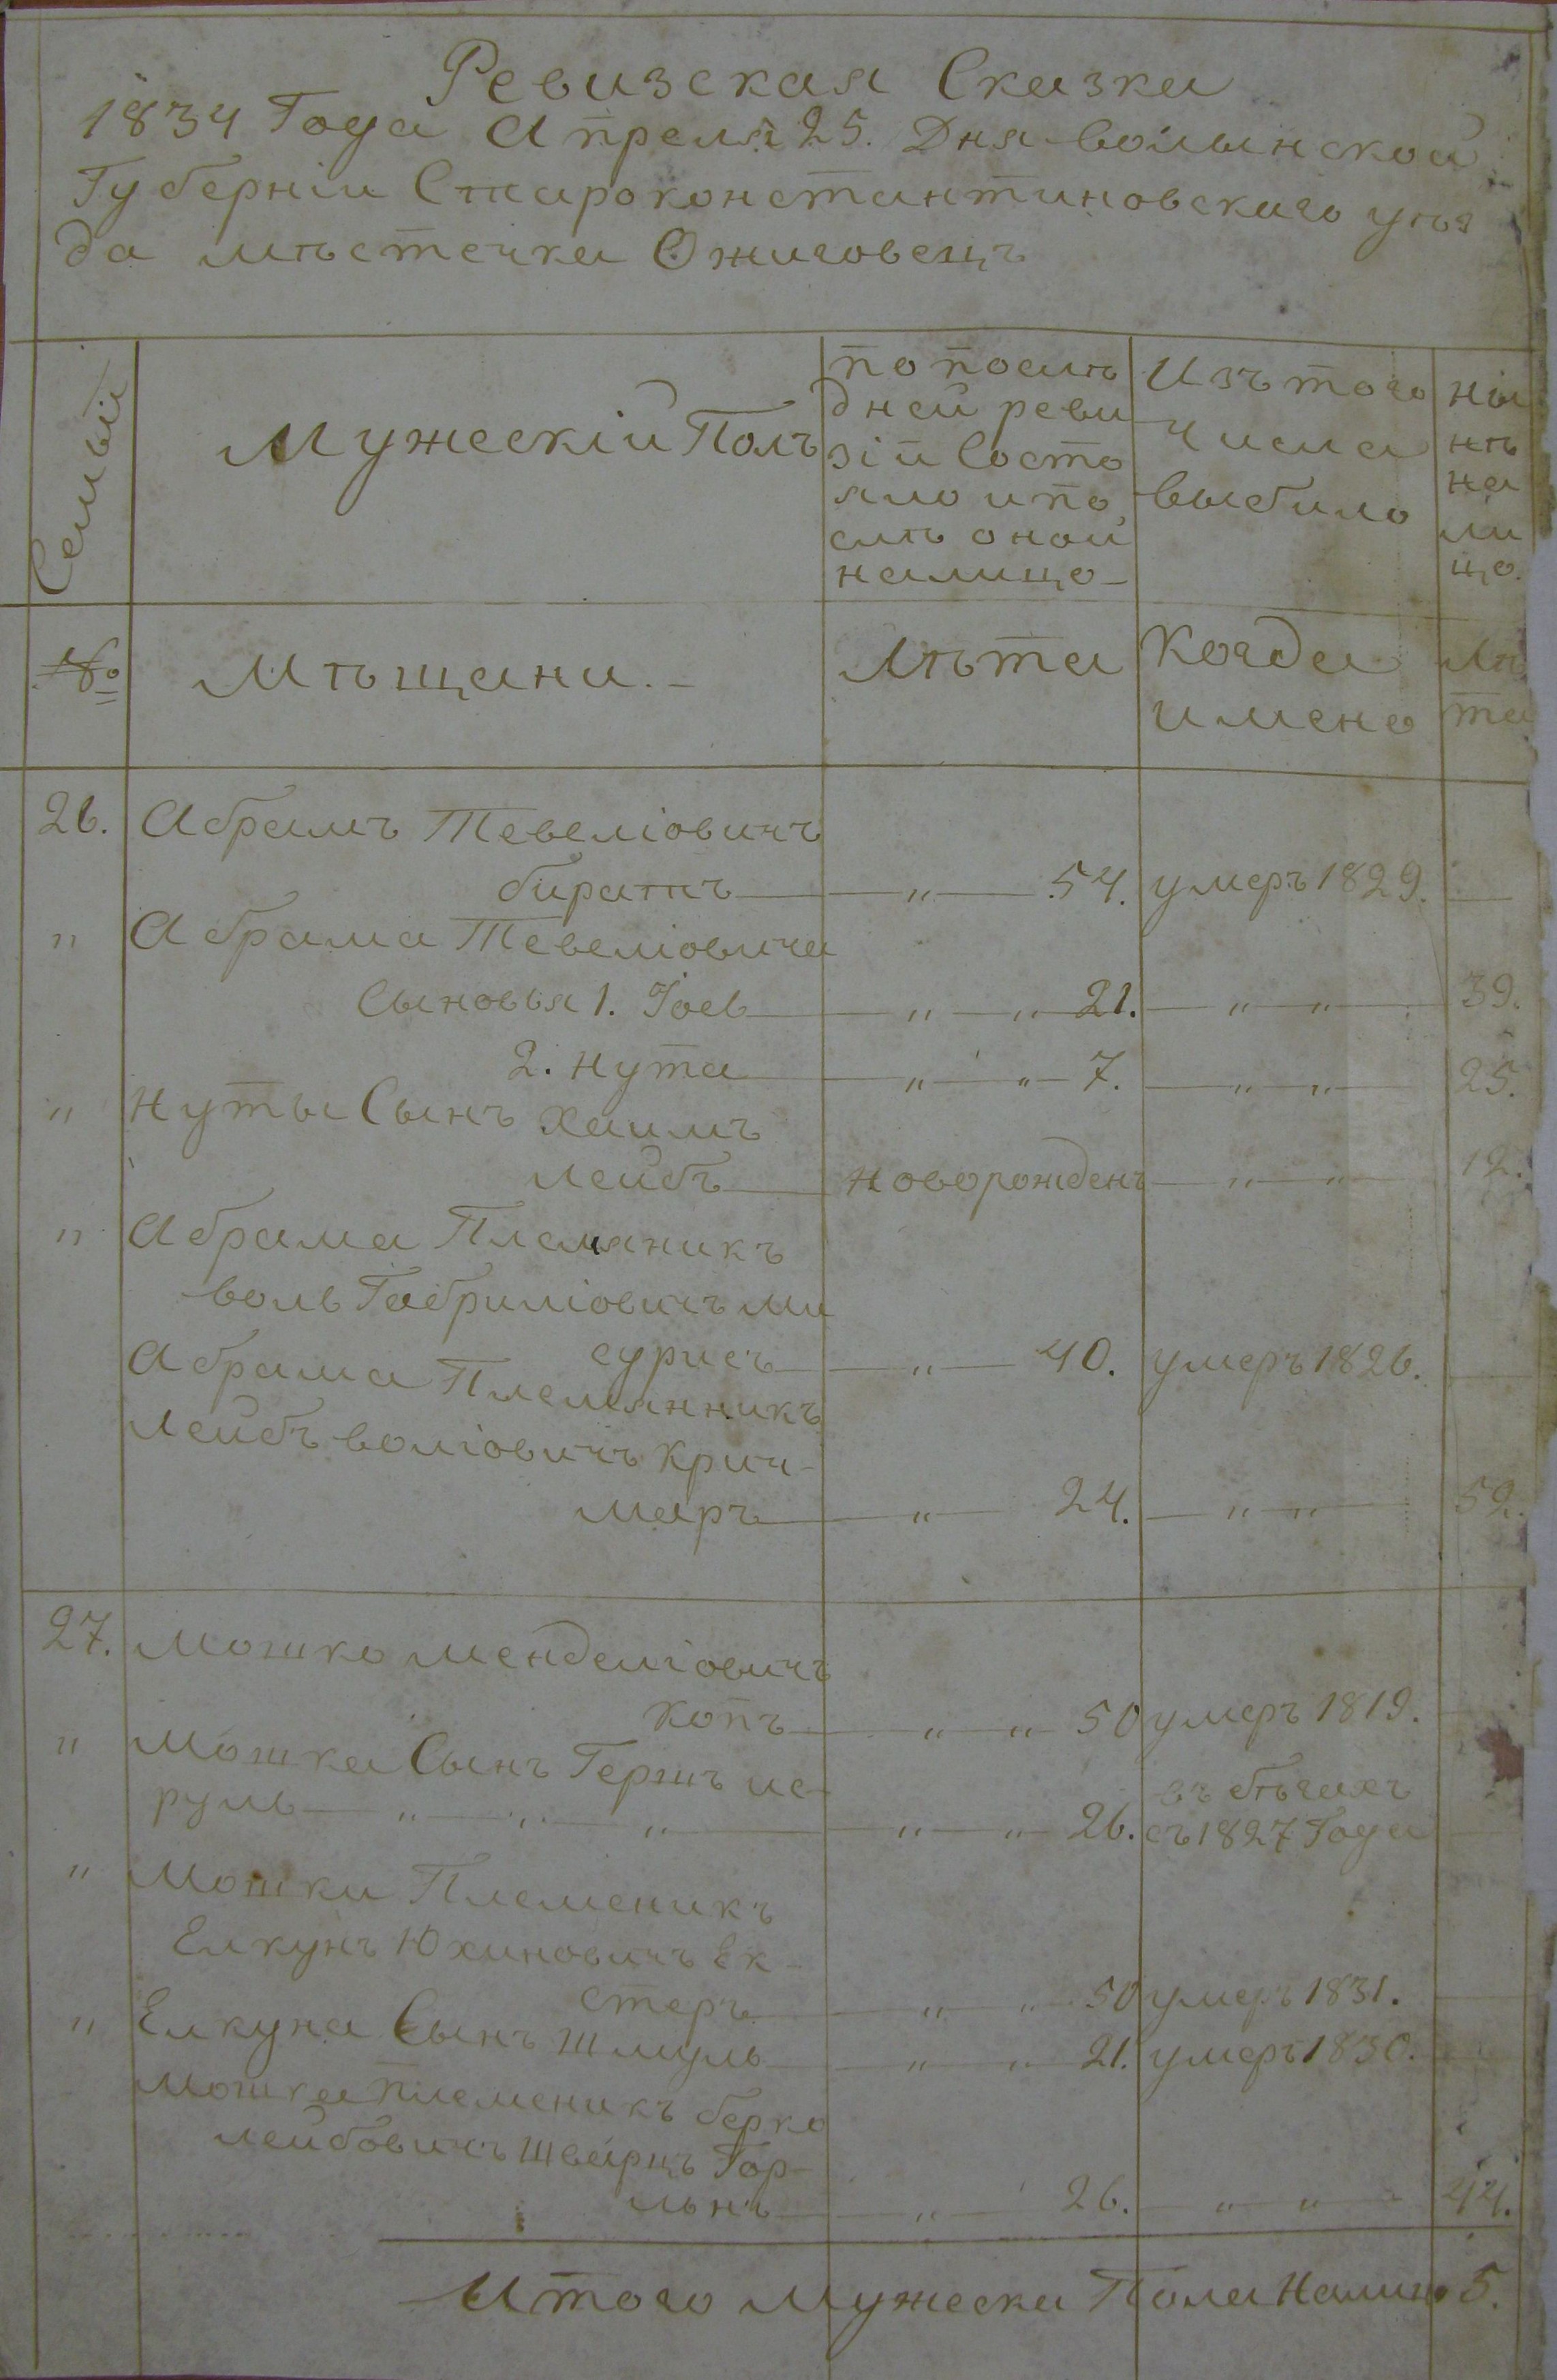 Ревизская Сказка
1834 Года Апреля 25. Дня волынской
Губерніи Староконстантиновскаго уѣз
да мѣстечка Ожиговецъ
Семьи
Мужескій Полъ
по послѣ
дней реви
зіи Состо
яло и по
слѣ оной
налицо
Изъ того
числа
выбило
ны
нѣ
на
ли
цо.
№
Мѣщани.
Лѣта
Когда
имено
Лѣ
та
26. Абрамъ Тевеліовичъ
биратъ — „ — 54. умеръ 1829. —
„ Абрама Тевеліовича
Сыновья 1. Іосв — „ — „ 21. — „ — „ 39.
2. Нута — „ — „ — 7. — „ — „ 25.
„ Нуты Сынъ Хаимъ
лейбъ — новорожденъ — „ — „ 12.
„ Абрама Племяникъ
воль Габриліовичъ ми
сурисъ — „ — 40. умеръ 1826.
Абрама Племянникъ
Лейбъ воліовичъ Крич-
маръ — „ — 24. — „ — „ — 52.
27. Мошко менделіовичъ
копъ — „ — „ — 50 умеръ 1819.
„ Мошка Сынъ Гершъ ис-
руль — „ — „ — „ — „ — „ — 26. въ бѣгахъ
съ 1827 Года
„ Мошки Племеникъ
Елкунъ Юхиновичъ Ек-
стеръ — „ — „ 50 умеръ 1831.
„ Елкуна Сынъ Шмуль — „ — „ 21. умеръ 1830.
Мошка племеникъ берко
лейбовичъ Шварцъ Гор-
льнъ — „ — 26. — „ — „ — 44.
Итого мужеска Пола Налицо 5.